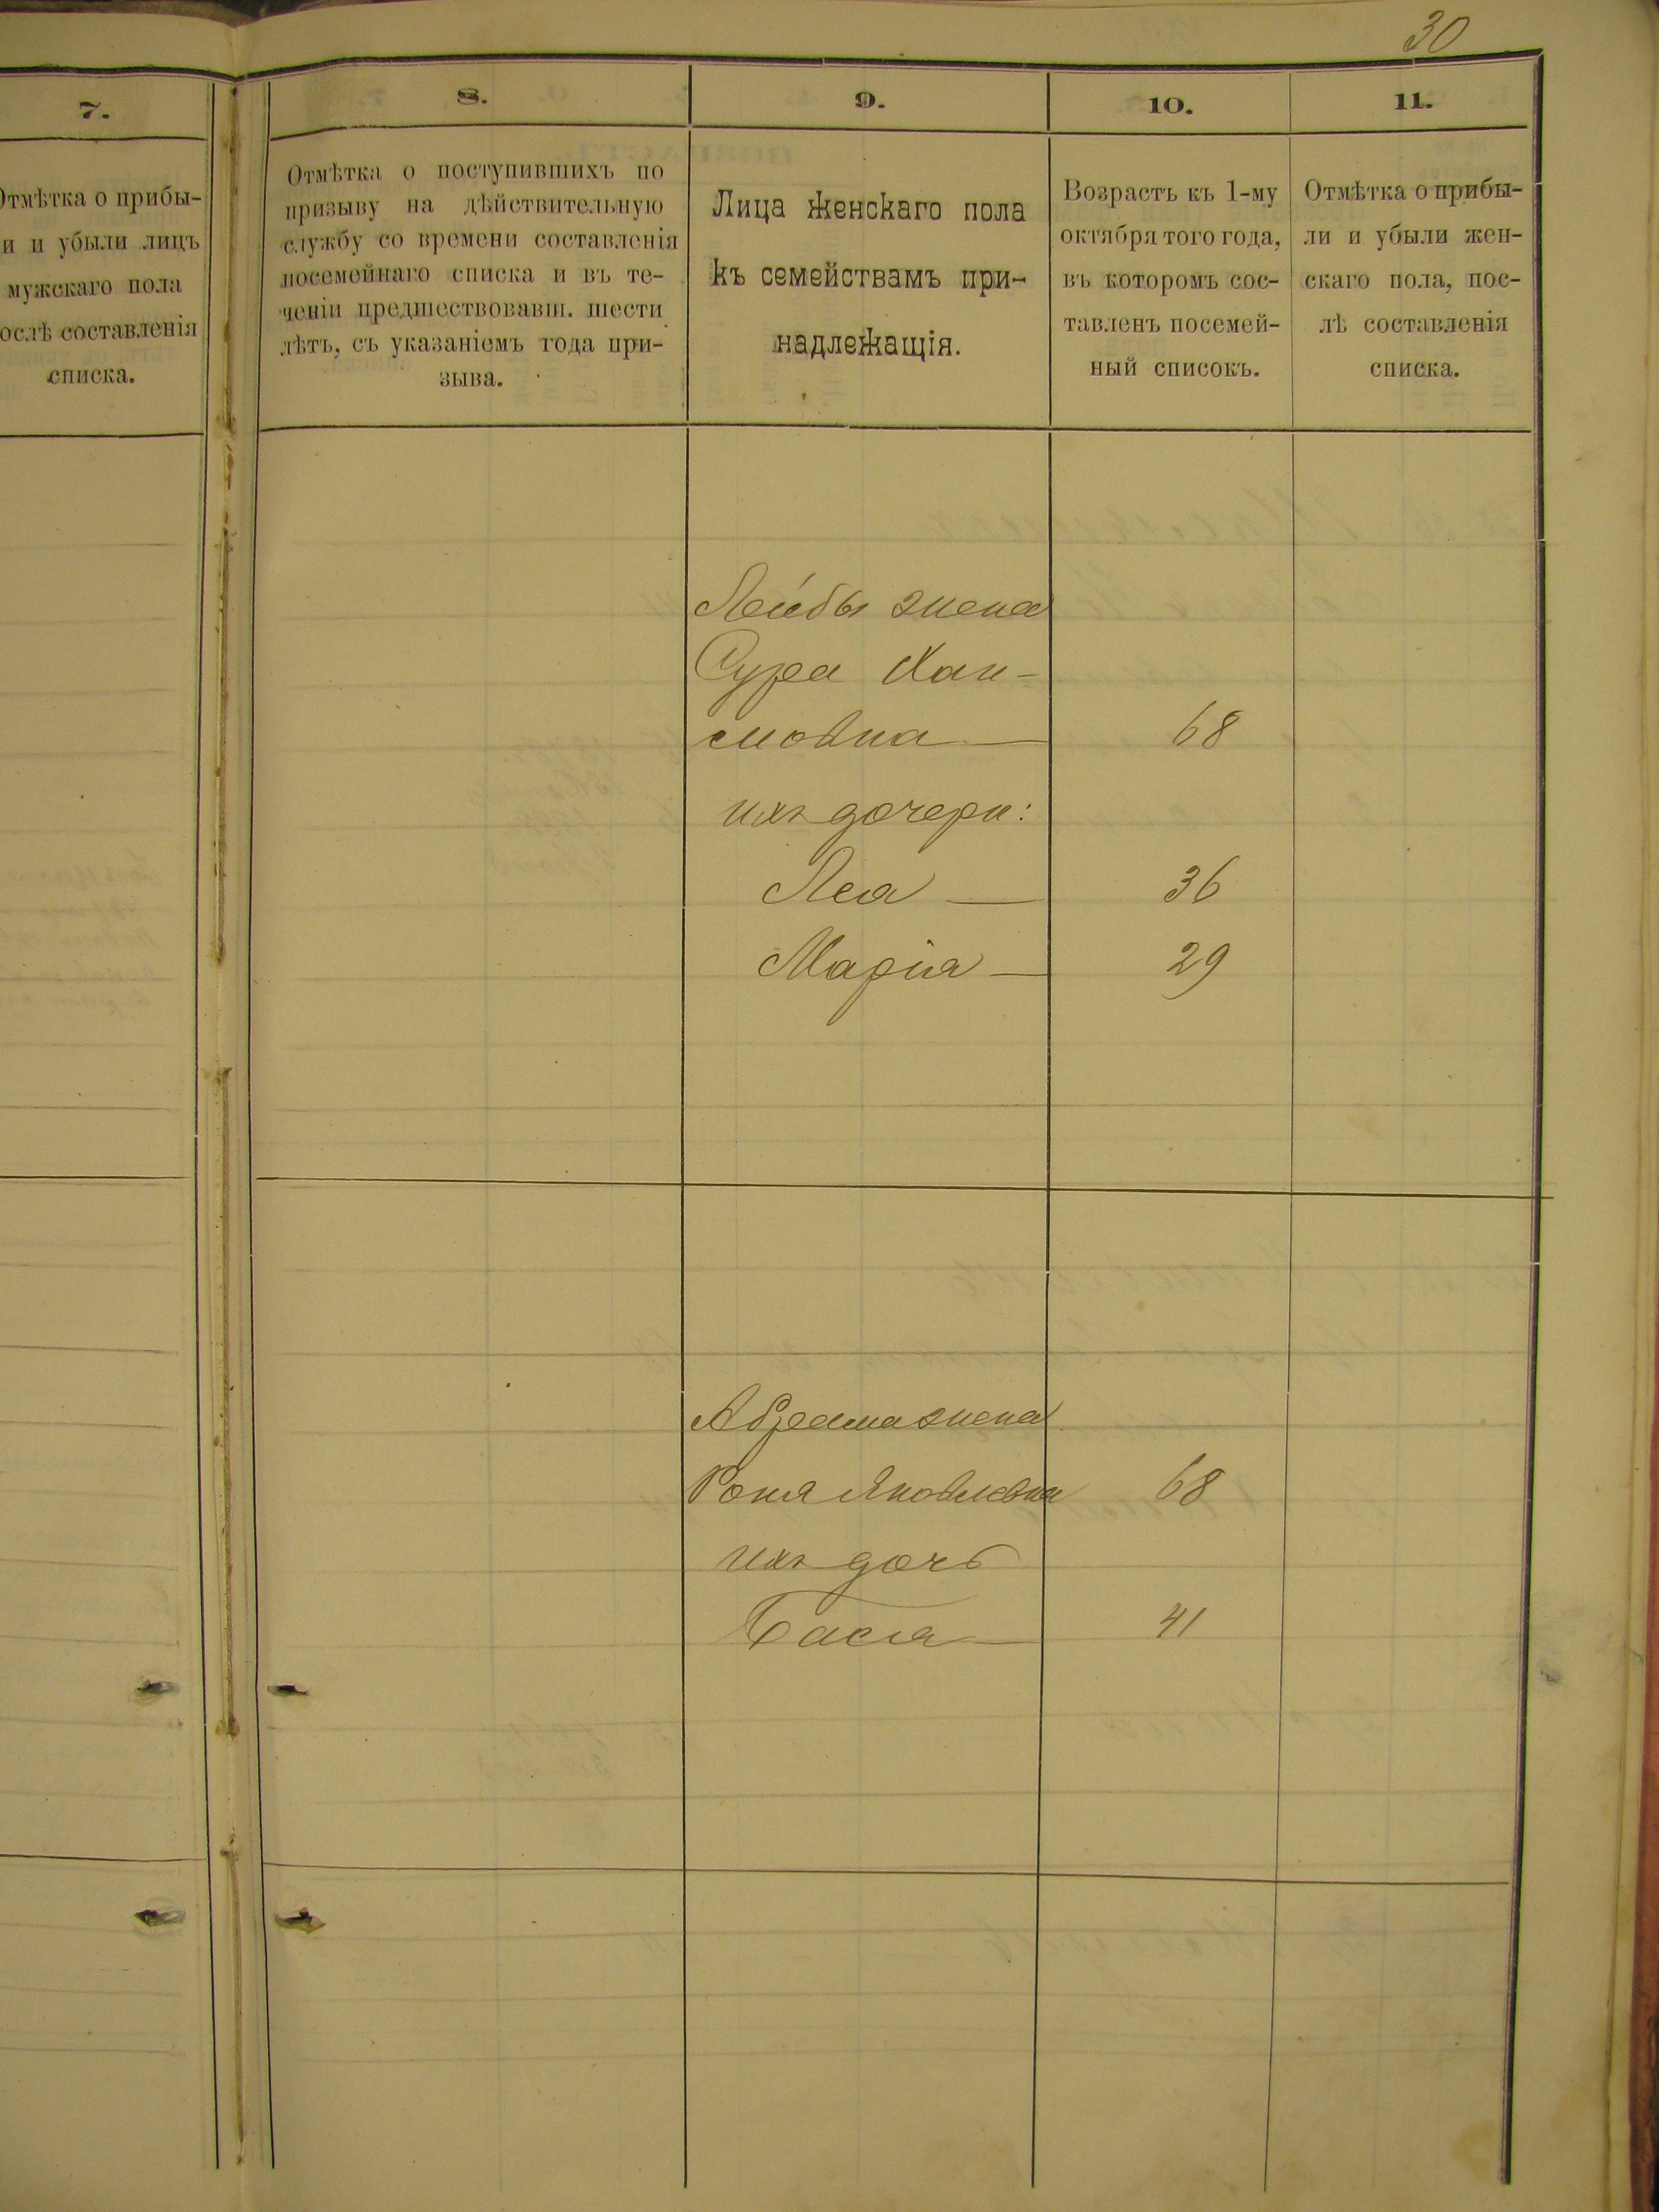 30
7.
8.
9.
10.
11.
Отмѣтка о прибы-
и и убыли лицъ
мужскаго пола
ослѣ составленія
списка.
Отмѣтка о поступившихъ по
призыву на дѣйствительную
службу со времени составленія
посемейнаго списка и въ те-
ченіи предшествовавш. шести
лѣтъ, съ указаніемъ года при-
зыва.
Лица женскаго пола
къ семействамъ при-
надлежащія.
Возрастъ къ 1-му
октября того года,
въ которомъ сос-
тавленъ посемей-
ный списокъ.
Отмѣтка о прибы-
ли и убыли жен-
скаго пола, пос-
лѣ составленія
списка.
Лейбы жена
Сура Хаи-
мовна — 68
ихъ дочери:
Леа — 36
Марія — 29
Абрама жена
Роня Яковлевна 68
ихъ дочь
Бася — 41